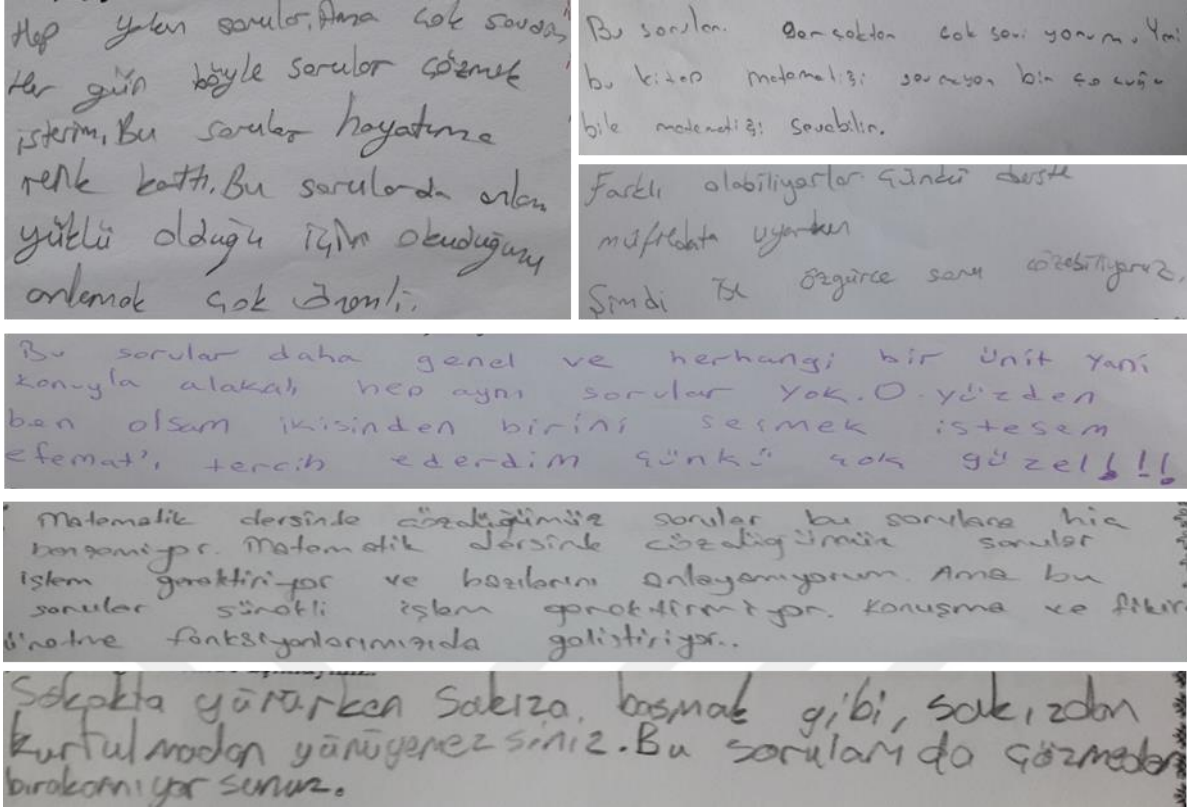 Hep yakın sorular. Ama çok sevdim
Her gün böyle sorular çözmek
isterim, Bu sorular hayatıma
renk kattı. Bu sorularda anlam
yüklü olduğu için okuduğunu
anlamak çok önemli.
Bu soruları gerçekten çok seviyorum. Yani
bu kitap matematiği sevmeyen bin çocuğu
bile matematiği sevebilir.
Farklı olabiliyorlar. Çünkü derste
müfredata uyarken
Şimdi ise özgürce soru çözebiliyoruz.
Bu sorular daha genel ve herhangi bir ünit yani
konuyla alakalı hep aynı sorular yok. O yüzden
ben olsam ikisinden birini seçmek istesem
efemat'ı tercih ederdim çünkü çok güzel!!!
Matematik dersinde çözdüğümüz sorular bu sorulara hiç
benzemiyor. Matematik dersinde çözdüğümüz sorular
işlem gerektiriyor ve bazılarını anlayamıyorum. Ama bu
sorular sürekli işlem gerektirmiyor. Konuşma ve fikir
üretme fonksiyonlarımızıda geliştiriyor..
Sokakta yürürken Sakıza basmak gibi, sakızdan
kurtulmadan yürüyemezsiniz. Bu soruları da çözmeden
bırakamıyorsunuz.